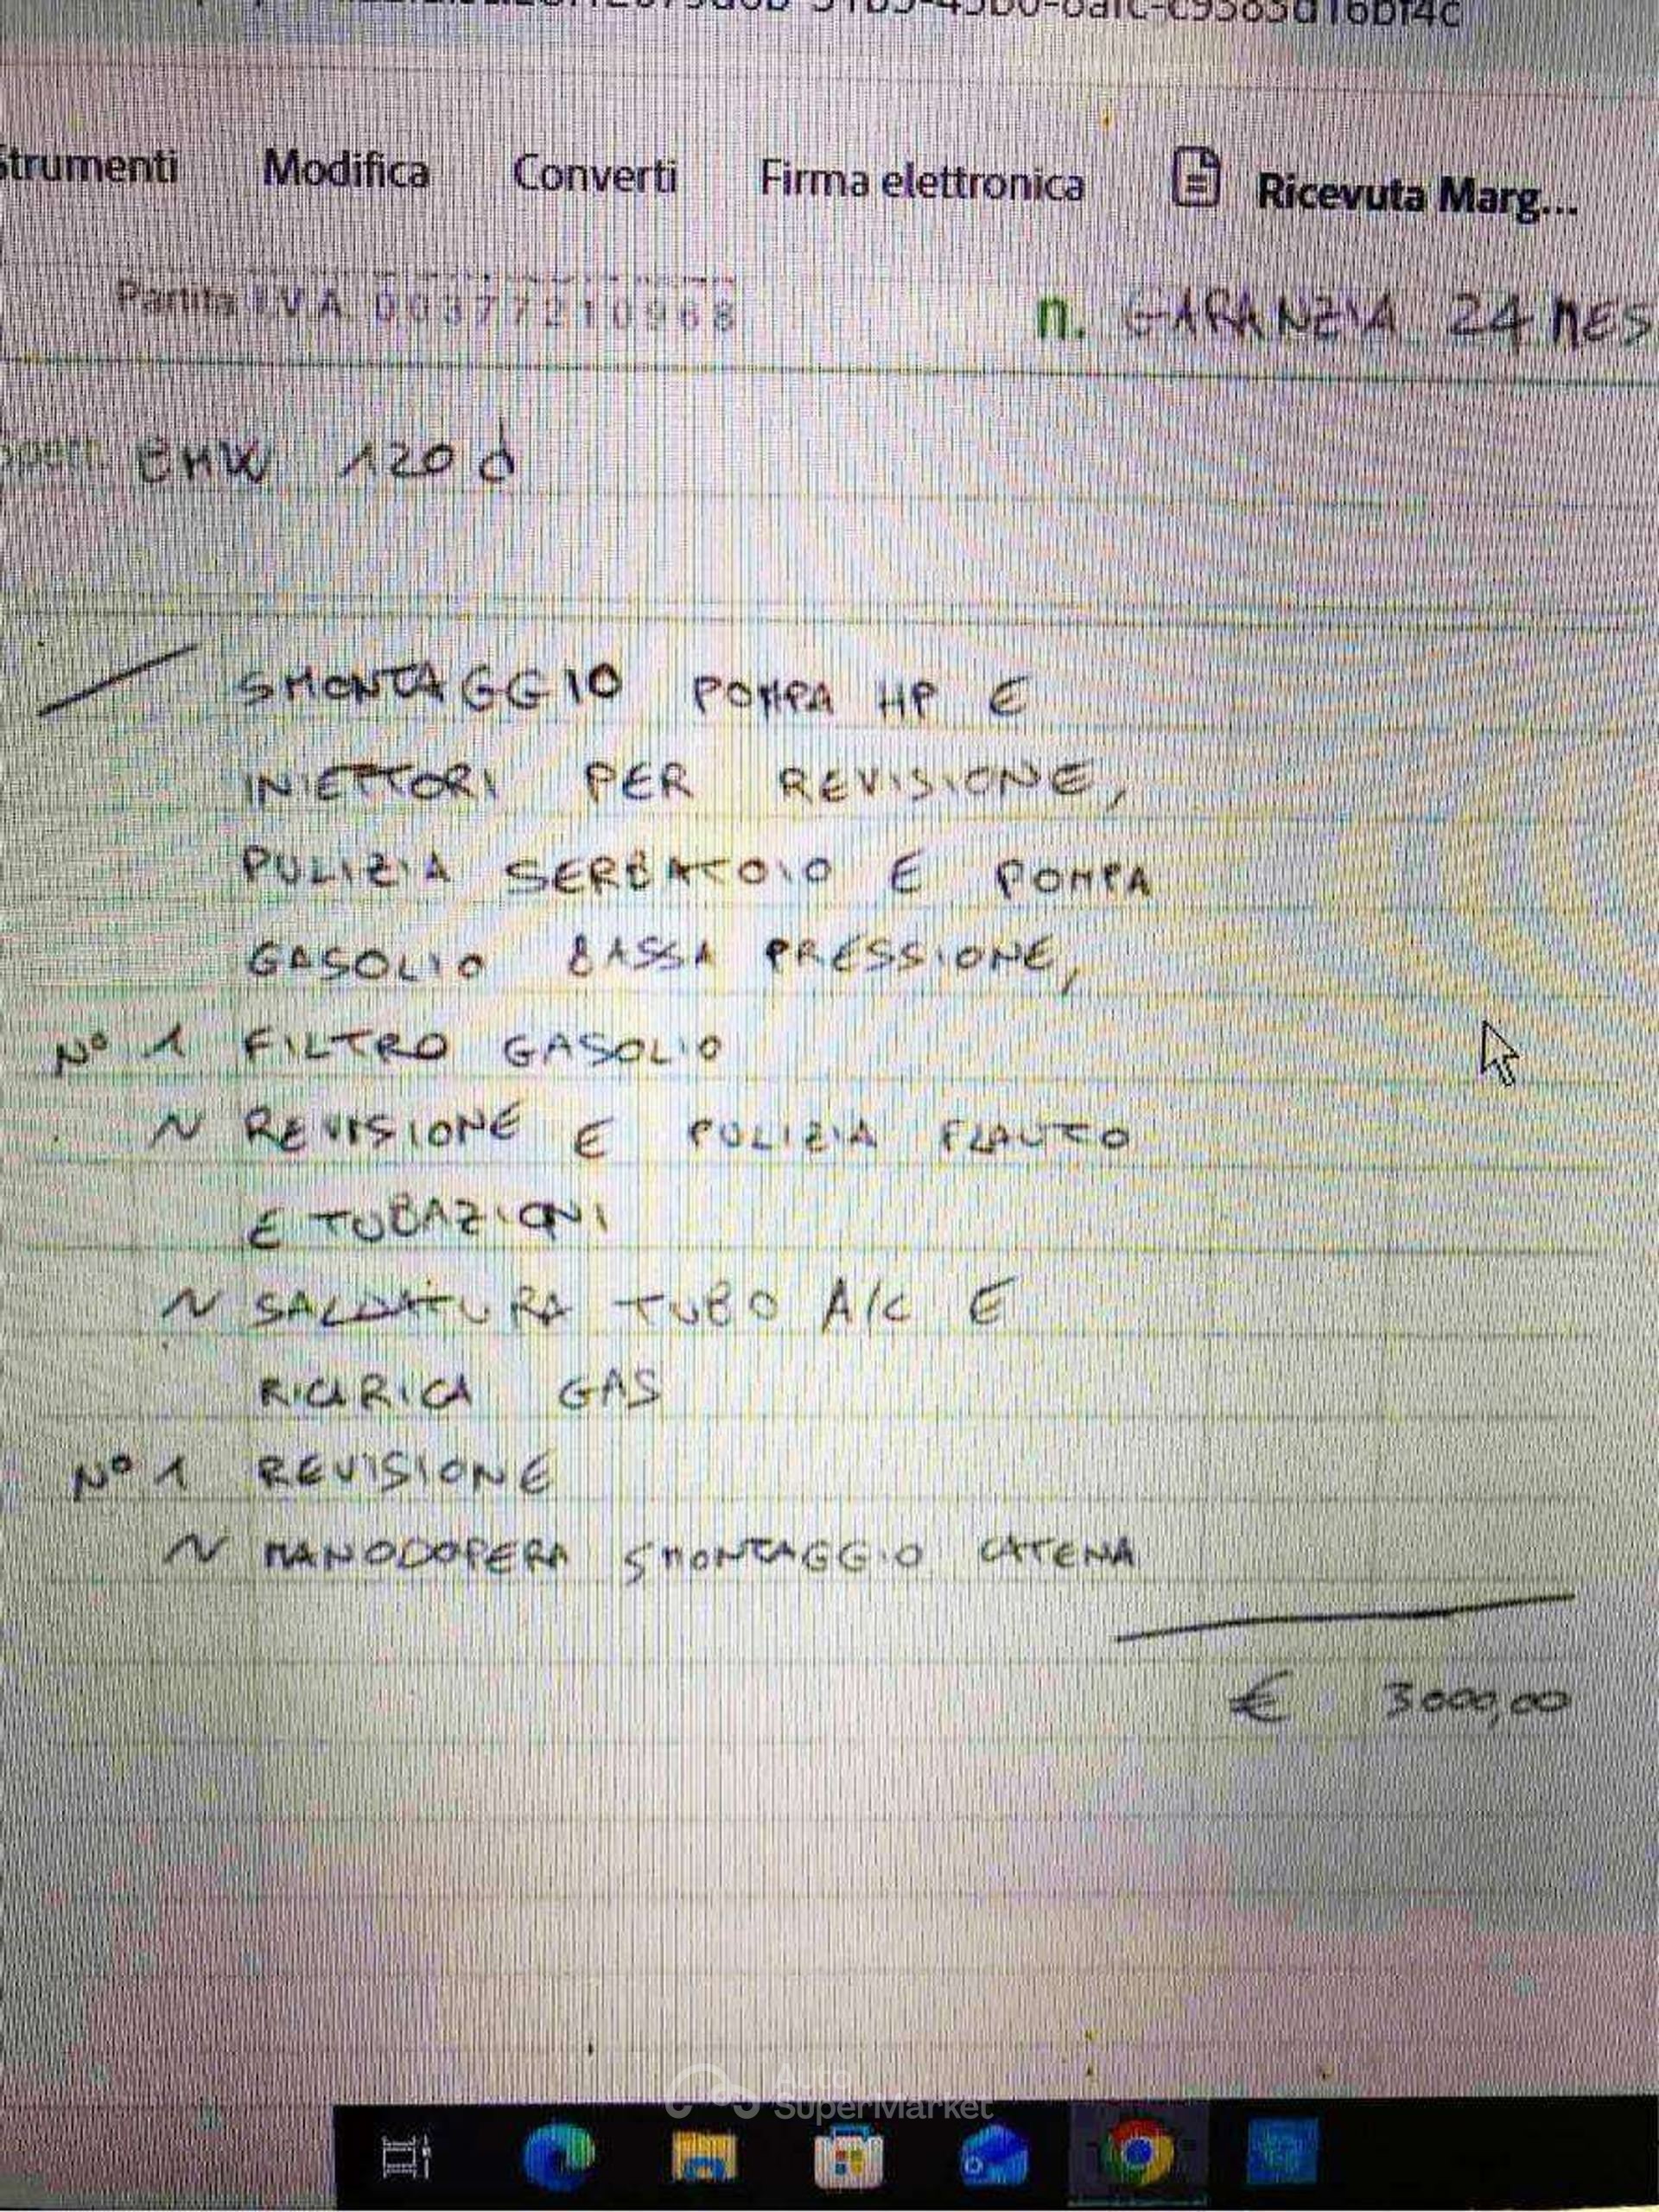 Strumenti Modifica Converti Firma elettronica Ricevuta Marg...
Partita I.V.A. 00377210968 n. GARANZIA 24 MES
BMW 120d
SMONTAGGIO POMPA HP E
INIETTORI PER REVISIONE,
PULIZIA SERBATOIO E POMPA
GASOLIO BASSA PRESSIONE,
N° 1 FILTRO GASOLIO
N REVISIONE E PULIZIA FLAUTO
E TUBAZIONI
N SALDATURA TUBO A/C E
RICARICA GAS
N° 1 REVISIONE
N MANODOPERA SMONTAGGIO CATENA
€ 3000,00
Auto
SuperMarket